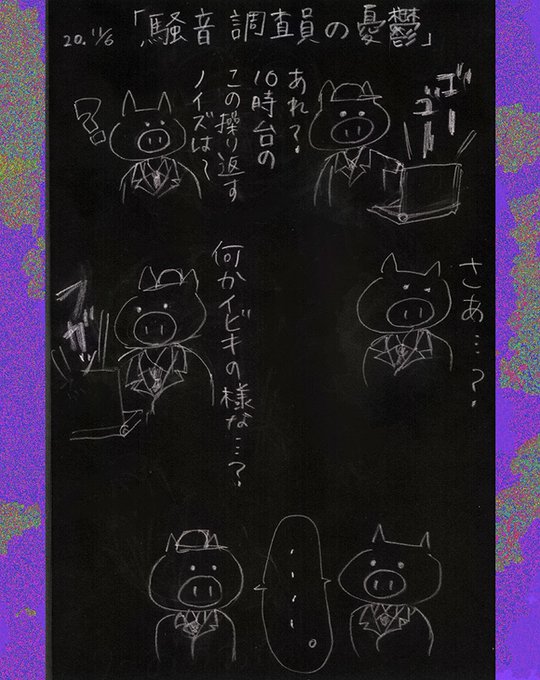 20.11/6 「騒音調査員の憂鬱」
ゴー
ゴー
あれ?
10時台の
この操り返す
ノイズは?
?
さあ…?
何かイビキの様な…?
フガッ
・・・・。